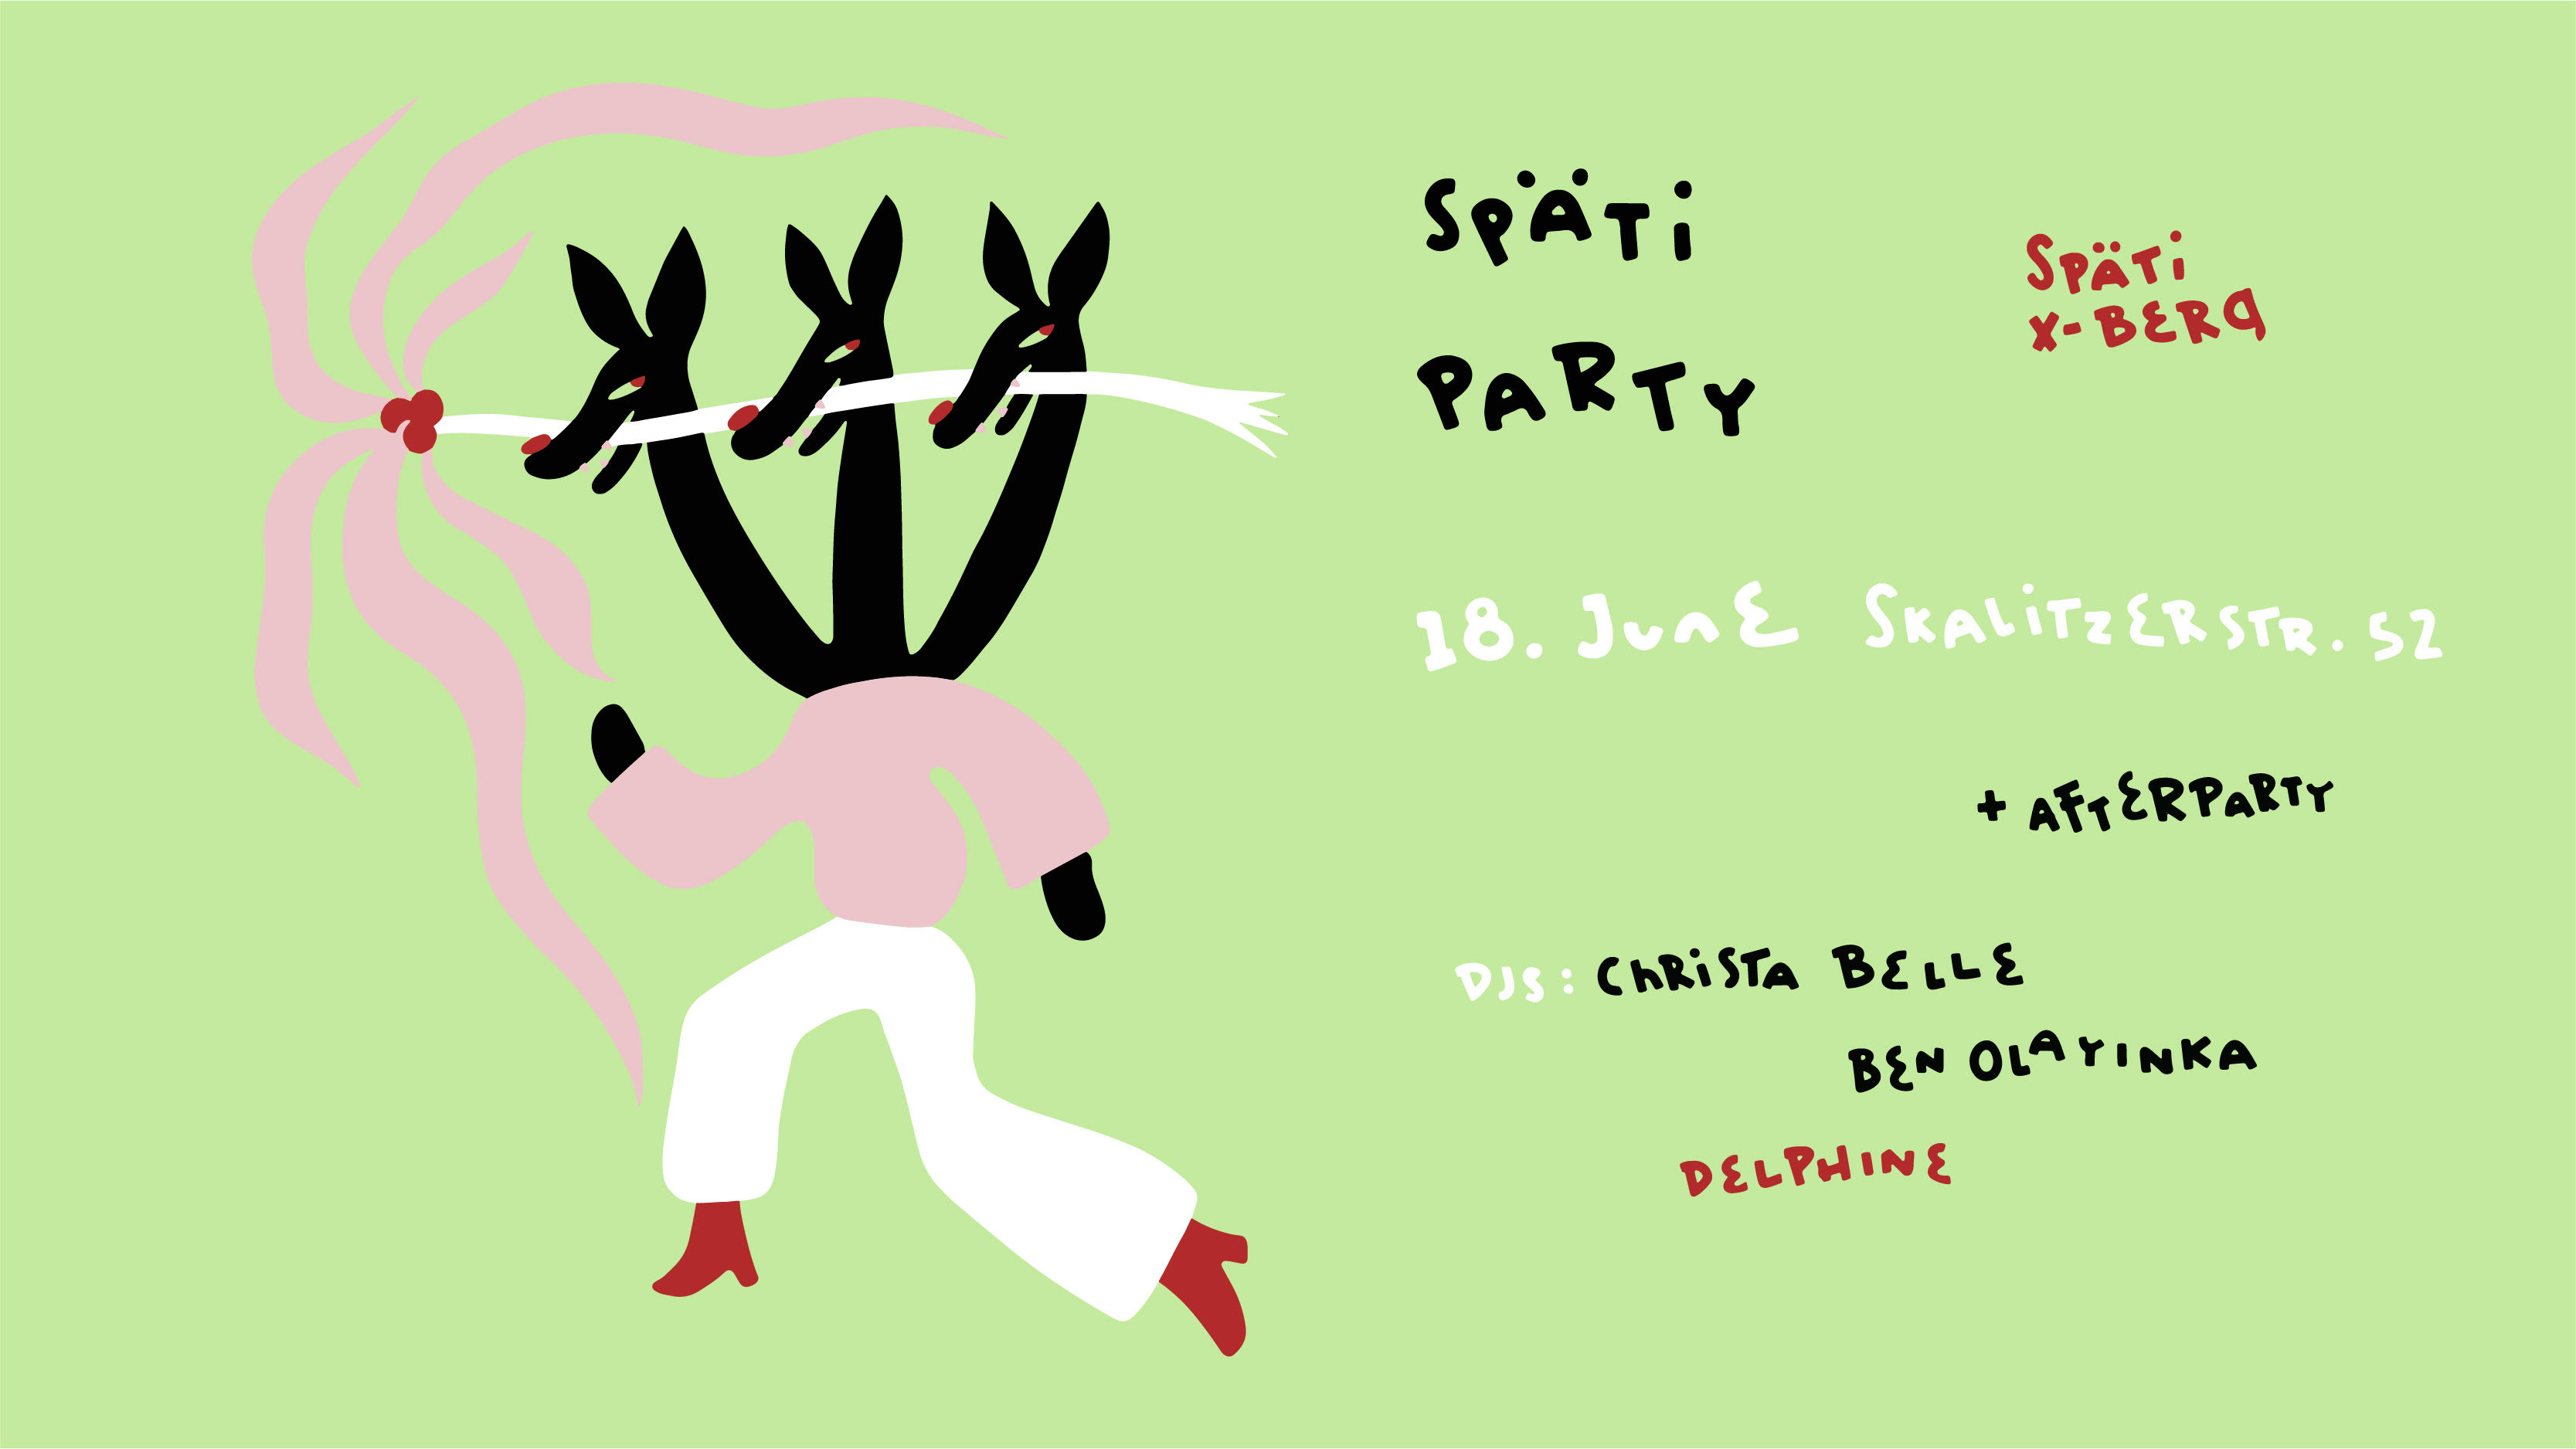 SPÄTi
PARTY
SPÄTi
X-BERG
18. JunE SKALiTZERSTR. 52
+ AFTERPARTY
DJS: ChRiSTA BELLE
BEN OLAYINKA
DELPHINE